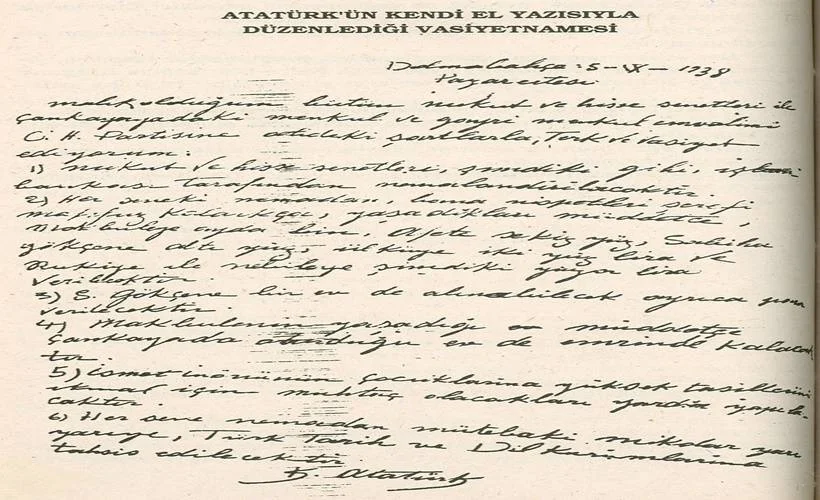 ATATÜRK'ÜN KENDİ EL YAZISIYLA
DÜZENLEDİĞİ VASİYETNAMESİ
Dolmabahçe: 5-IX-1938
Pazartesi
malik olduğum bütün nukut ve hisse senetleri ile
Çankayadaki menkul ve gayri menkul emvalimi
C. H. Partisine atideki şartlarla, Terk ve Vasiyet
ediyorum:
1) nukut ve hisse senetleri, şimdiki gibi, iş
bankası tarafından nemalandırılacaktır.
2) Her seneki nemadan, bana nispetleri şerefi
mahfuz kaldıkça, yaşadıkları müddetçe,
Makbuleye ayda bin, Afete sekiz yüz, Sabiha
gökçene altı yüz, ülküye iki yüz lira ve
Rukiye ile nebileye şimdiki yüzer lira
verilecektir.
3) S. Gökçene bir ev de alınabilecek ayrıca para
verilecektir.
4) Makbulenin yaşadığı müddetçe
Çankayada oturduğu ev de emrinde kalacak
tır.
5) ismet inönünün çocuklarına yüksek tahsillerini
ikmal için muhtaç olacakları yardım yapıla-
caktır.
6) Her sene nemadan mütebaki miktar yarı
yarıya, Türk Tarih ve Dil Kurumlarına
tahsis edilecektir.
K. Atatürk